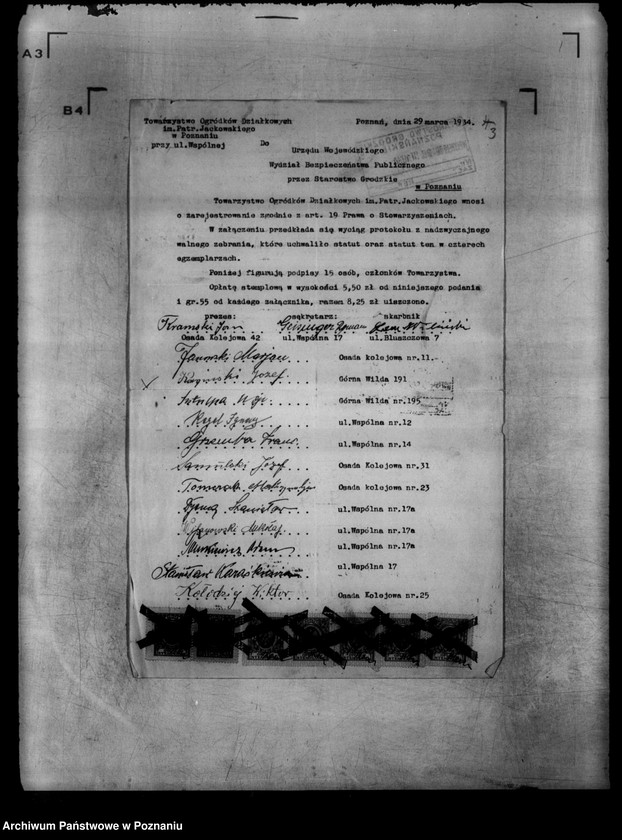 A3
B4
Towarzystwo Ogródków Działkowych
im.Patr.Jackowskiego
w Poznaniu
przy ul.Wspólnej
Poznań, dnia 29 marca 1934.
3
Do
Urzędu Wojewódzkiego
Wydział Bezpieczeństwa Publicznego
przez Starostwo Grodzkie
w Poznaniu
Towarzystwo Ogródków Działkowych im.Patr.Jackowskiego wnosi
o zarejestrowanie zgodnie z art. 19 Prawa o Stowarzyszeniach.
W załączeniu przedkłada się wyciąg protokołu z nadzwyczajnego
walnego zebrania, które uchwaliło statut oraz statut ten w czterech
egzemplarzach.
Poniżej figurują podpisy 15 osób, członków Towarzystwa.
Opłatę stemplową w wysokości 5,50 zł od niniejszego podania
i gr.55 od każdego załącznika, razem 8,25 zł uiszczono.
prezes: sekretarz: skarbnik
Jan
Osada Kolejowa 42 ul.Wspólna 17 ul.Bluszczowa 7
Marjan Osada kolejowa nr.11.
Józef Górna Wilda 191
Górna Wilda nr.195
ul.Wspólna nr.12
ul.Wspólna nr.14
Józef Osada Kolejowa nr.31
Osada kolejowa nr.23
Stanisław ul.Wspólna nr.17a
ul.Wspólna nr.17a
Adam ul.Wspólna nr.17a
Stanisław ul.Wspólna 17
Kołodziej Wiktor Osada Kolejowa nr.25
Archiwum Państwowe w Poznaniu